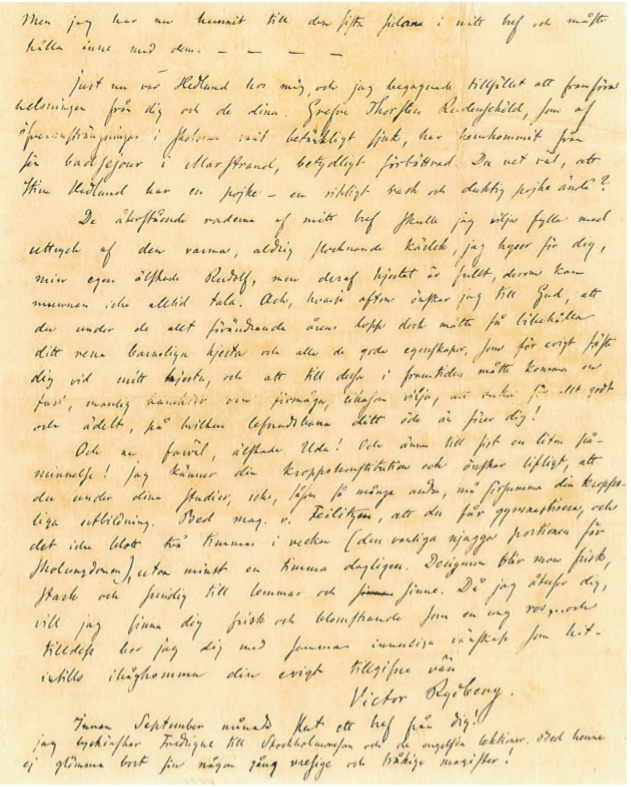 Men jag har nu hunnit till den sista sidan i mitt bref och måste
hålla inne med dem. — — — —
Just nu var Hedlund hos mig, och jag begagnade tillfället att framföra
helsningen från dig och de dina. Grefve Thorsten Rudenschöld, som af
öfveransträngningar i skolorna varit betänkligt sjuk, har hemkommit från
sin badsejour i Marstrand, betydligt förbättrad. Du vet väl, att
Stina Hedlund har en pojke – en riktigt rask och duktig pojke ändå?
De återstående raderna af mitt bref skulle jag vilja fylla med
uttryck af den varma, aldrig slocknande kärlek, jag hyser för dig,
min egen älskade Rudolf, men deraf hjertat är fullt, derom kan
munnen icke alltid tala. Ack, hvarje afton önskar jag till Gud, att
du under de allt förändrande årens lopp dock måtte få bibehålla
ditt rena barnsliga hjerta och alla de goda egenskaper, som för evigt fäste
dig vid mitt hjerta, och att till dessa i framtiden måtte komma en
fast, manlig karakter och förmåga, liksom vilja, att verka för allt godt
och ädelt, på hvilken lefnadsbana ditt öde än förer dig!
Och nu farväl, älskade Uda! Och ännu till sist en liten på-
minnelse! Jag känner din kroppskonstitution och önskar lifligt, att
du under dina studier, icke, såsom så många andra, må försumma din kropps-
liga utbildning. Bed mag. v. Feilitzen, att du får gymnastisera, och
det icke blott två timmar i veckan (den vanliga njugga portionen för
skolungdomen), utan minst en timma dagligen. Derigenom blir man frisk,
stark och smidig till lemmar och sinne. Då jag återser dig,
vill jag finna dig frisk och blomstrande som en ung ros, och
tilldess ber jag dig med samma innerliga vänskap som hit-
intills ihågkomma din evigt tillgifne vän
Victor Rydberg.
Innan September månads slut ett bref från dig!
Jag lyckönskar Fredrique till Stockholmsresan och de engelska lektioner. Bed henne
ej glömma bort sin någon gång vresige och tråkige magister!